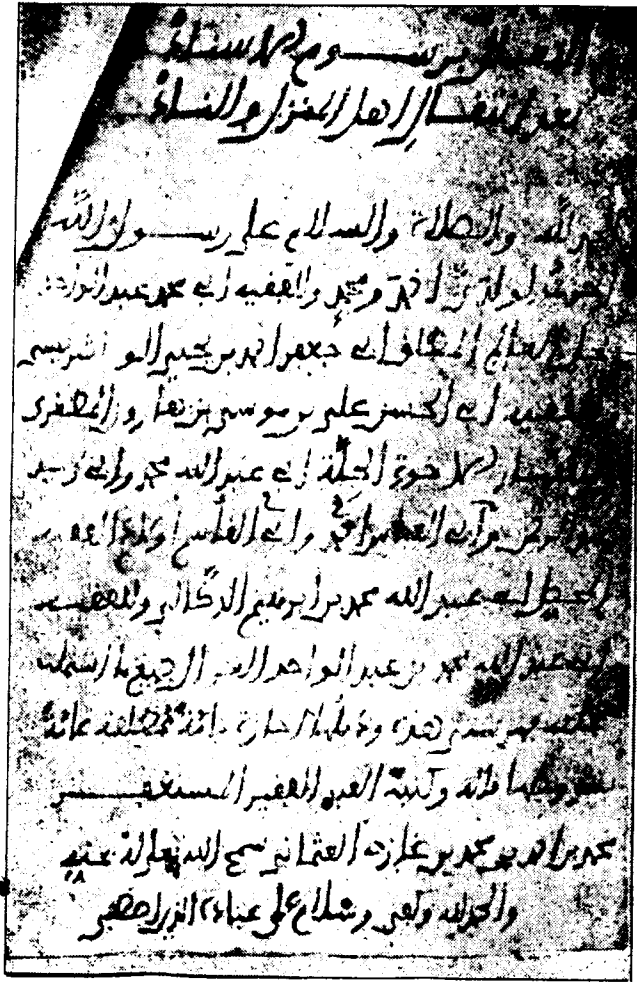 التعلل برسوم الإسناد
بعد انتقال أهل المنزل والناد
الحمد لله والصلاة والسلام على رسول الله
أجزت لولدي أحمد ومحمد وللفقيه أبي محمد عبد الواحد
العالم أبي جعفر أحمد بن يحيى الونشريسي
أبي الحسن علي بن موسى بن هارون المطغري
الإخوة الجلة أبي عبد الله محمد وأبي زيد
وأبي العباس أحمد وأبي القاسم أولاد الفقيه
أبي عبد الله محمد بن إبراهيم الدكالي وللفقيه
أبي عبد الله محمد بن عبد الواحد الغزال جميع ما اشتملت
عليه فهرستي هذه إجازة تامة مطلقة عامة
بشروطها قاله وكتبه العبد الفقير المستغفر
محمد بن أحمد بن محمد بن غازي العثماني سمح الله تعالى له بمنه
والحمد لله وكفى وسلام على عباده الذين اصطفى